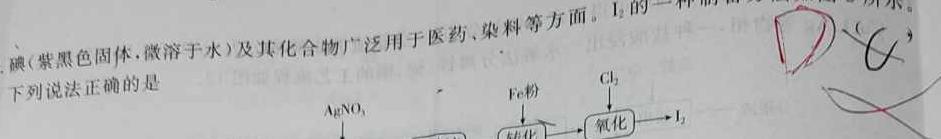 碘(紫黑色固体,微溶于水)及其化合物广泛用于医药、染料等方面。I₂的一种制备
下列说法正确的是
AgNO₃
Fe粉
Cl₂
转化
氧化
I₂
D